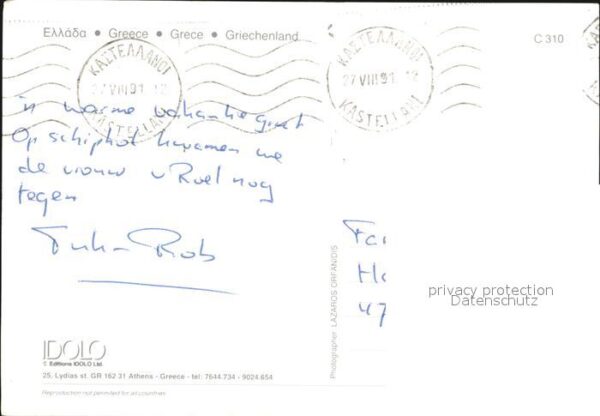 Ελλάδα • Greece • Grece • Griechenland
C 310
ΚΑΣΤΕΛΛΑΝΟΙ
27 VIII 91 12
KASTELLANI
ΚΑΣΤΕΛΛΑΝΟΙ
27 VIII 91 12
KASTELLANI
'n warme vakantiegroet
Op schiphol kwamen we
de vrouw v Roel nog
tegen
Rob
Fa
Ha
47
privacy protection
Datenschutz
Photographer LAZAROS ORFANIDIS
IDOLO
© Editions IDOLO Ltd.
25, Lydias st. GR 162 31 Athens - Greece - tel: 7644.734 - 9024.654
Reproduction not permited for all countries